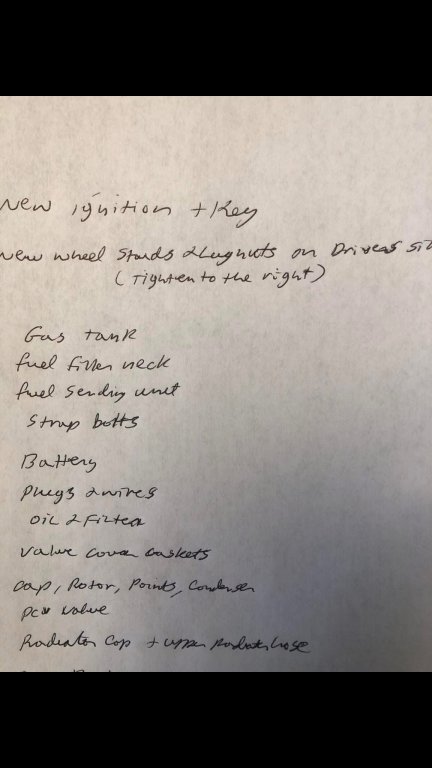 New ignition + Key
New wheel Studs & Lugnuts on Drivers si
( Tighten to the right )
Gas tank
fuel filler neck
fuel sending unit
Strap bolts
Battery
plugs & wires
oil & Filter
valve cover Gaskets
Cap, Rotor, Points, Condenser
PCV valve
Radiator Cap + upper Radiator hose